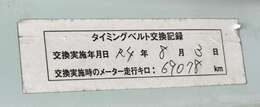 タイミングベルト交換記録
交換実施年月日 R4年 8月 3日
交換実施時のメーター走行キロ: 69078 km